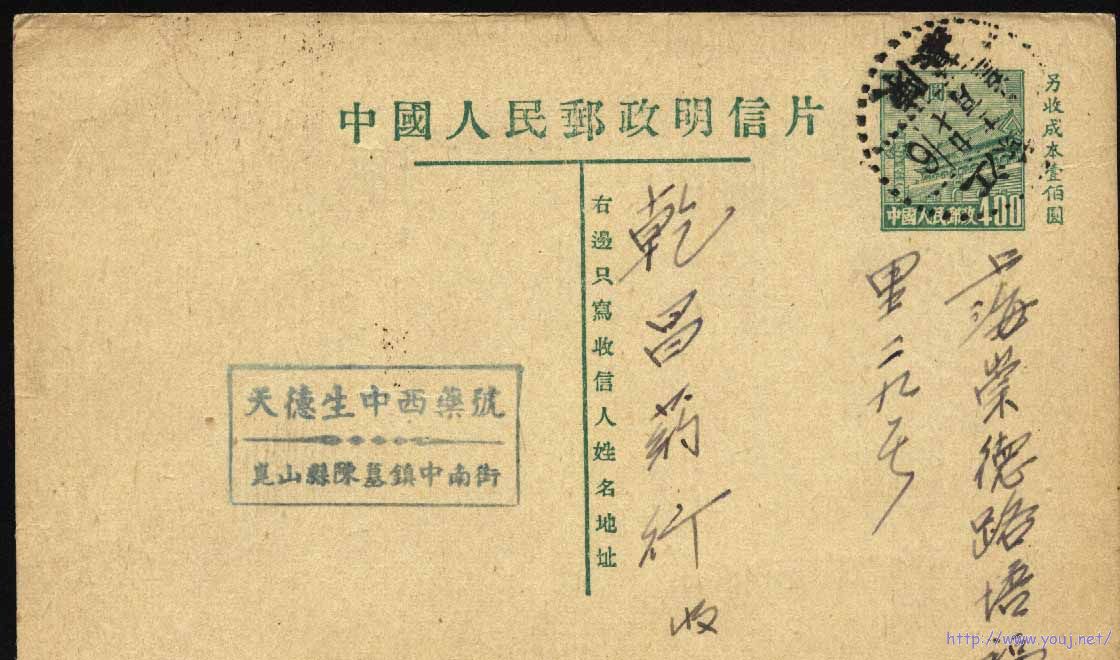 中國人民郵政明信片
另收成本壹佰圓
中國人民郵政400
右邊只寫收信人姓名地址
上海崇德路培福
里二九号
乾昌药行 收
天德生中西藥號
崑山縣陳墓鎮中南街
http://www.youj.net/